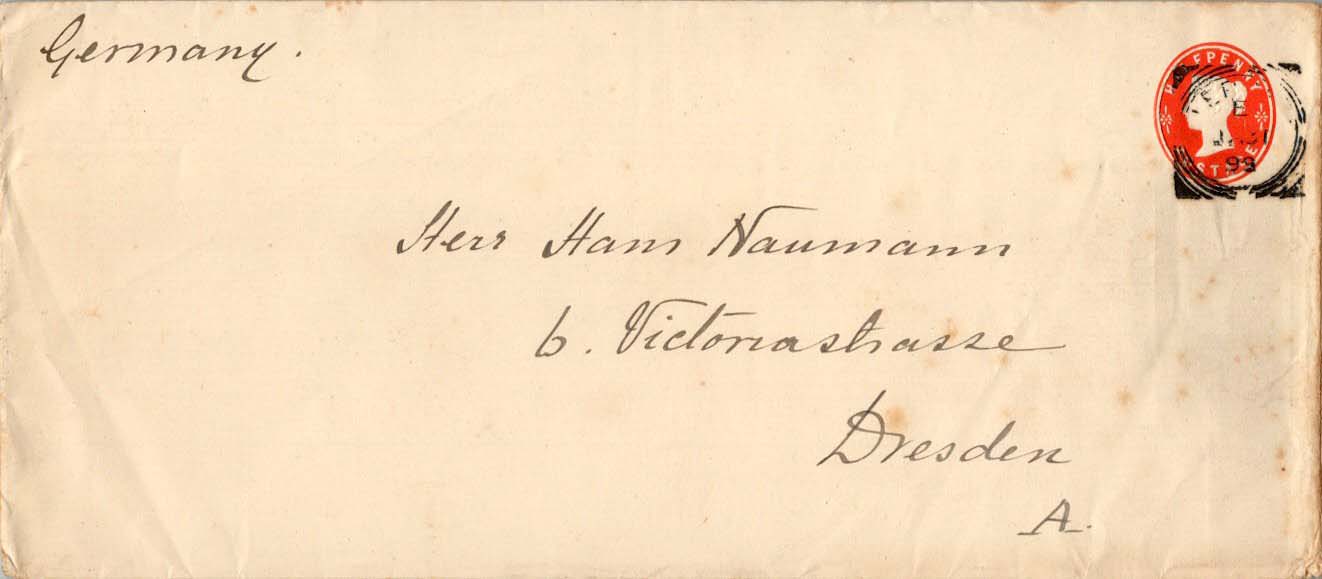 Germany.
HALFPENNY
E
JA 31
99
Herr Hans Naumann
6. Victoriastrasse
Dresden
A.